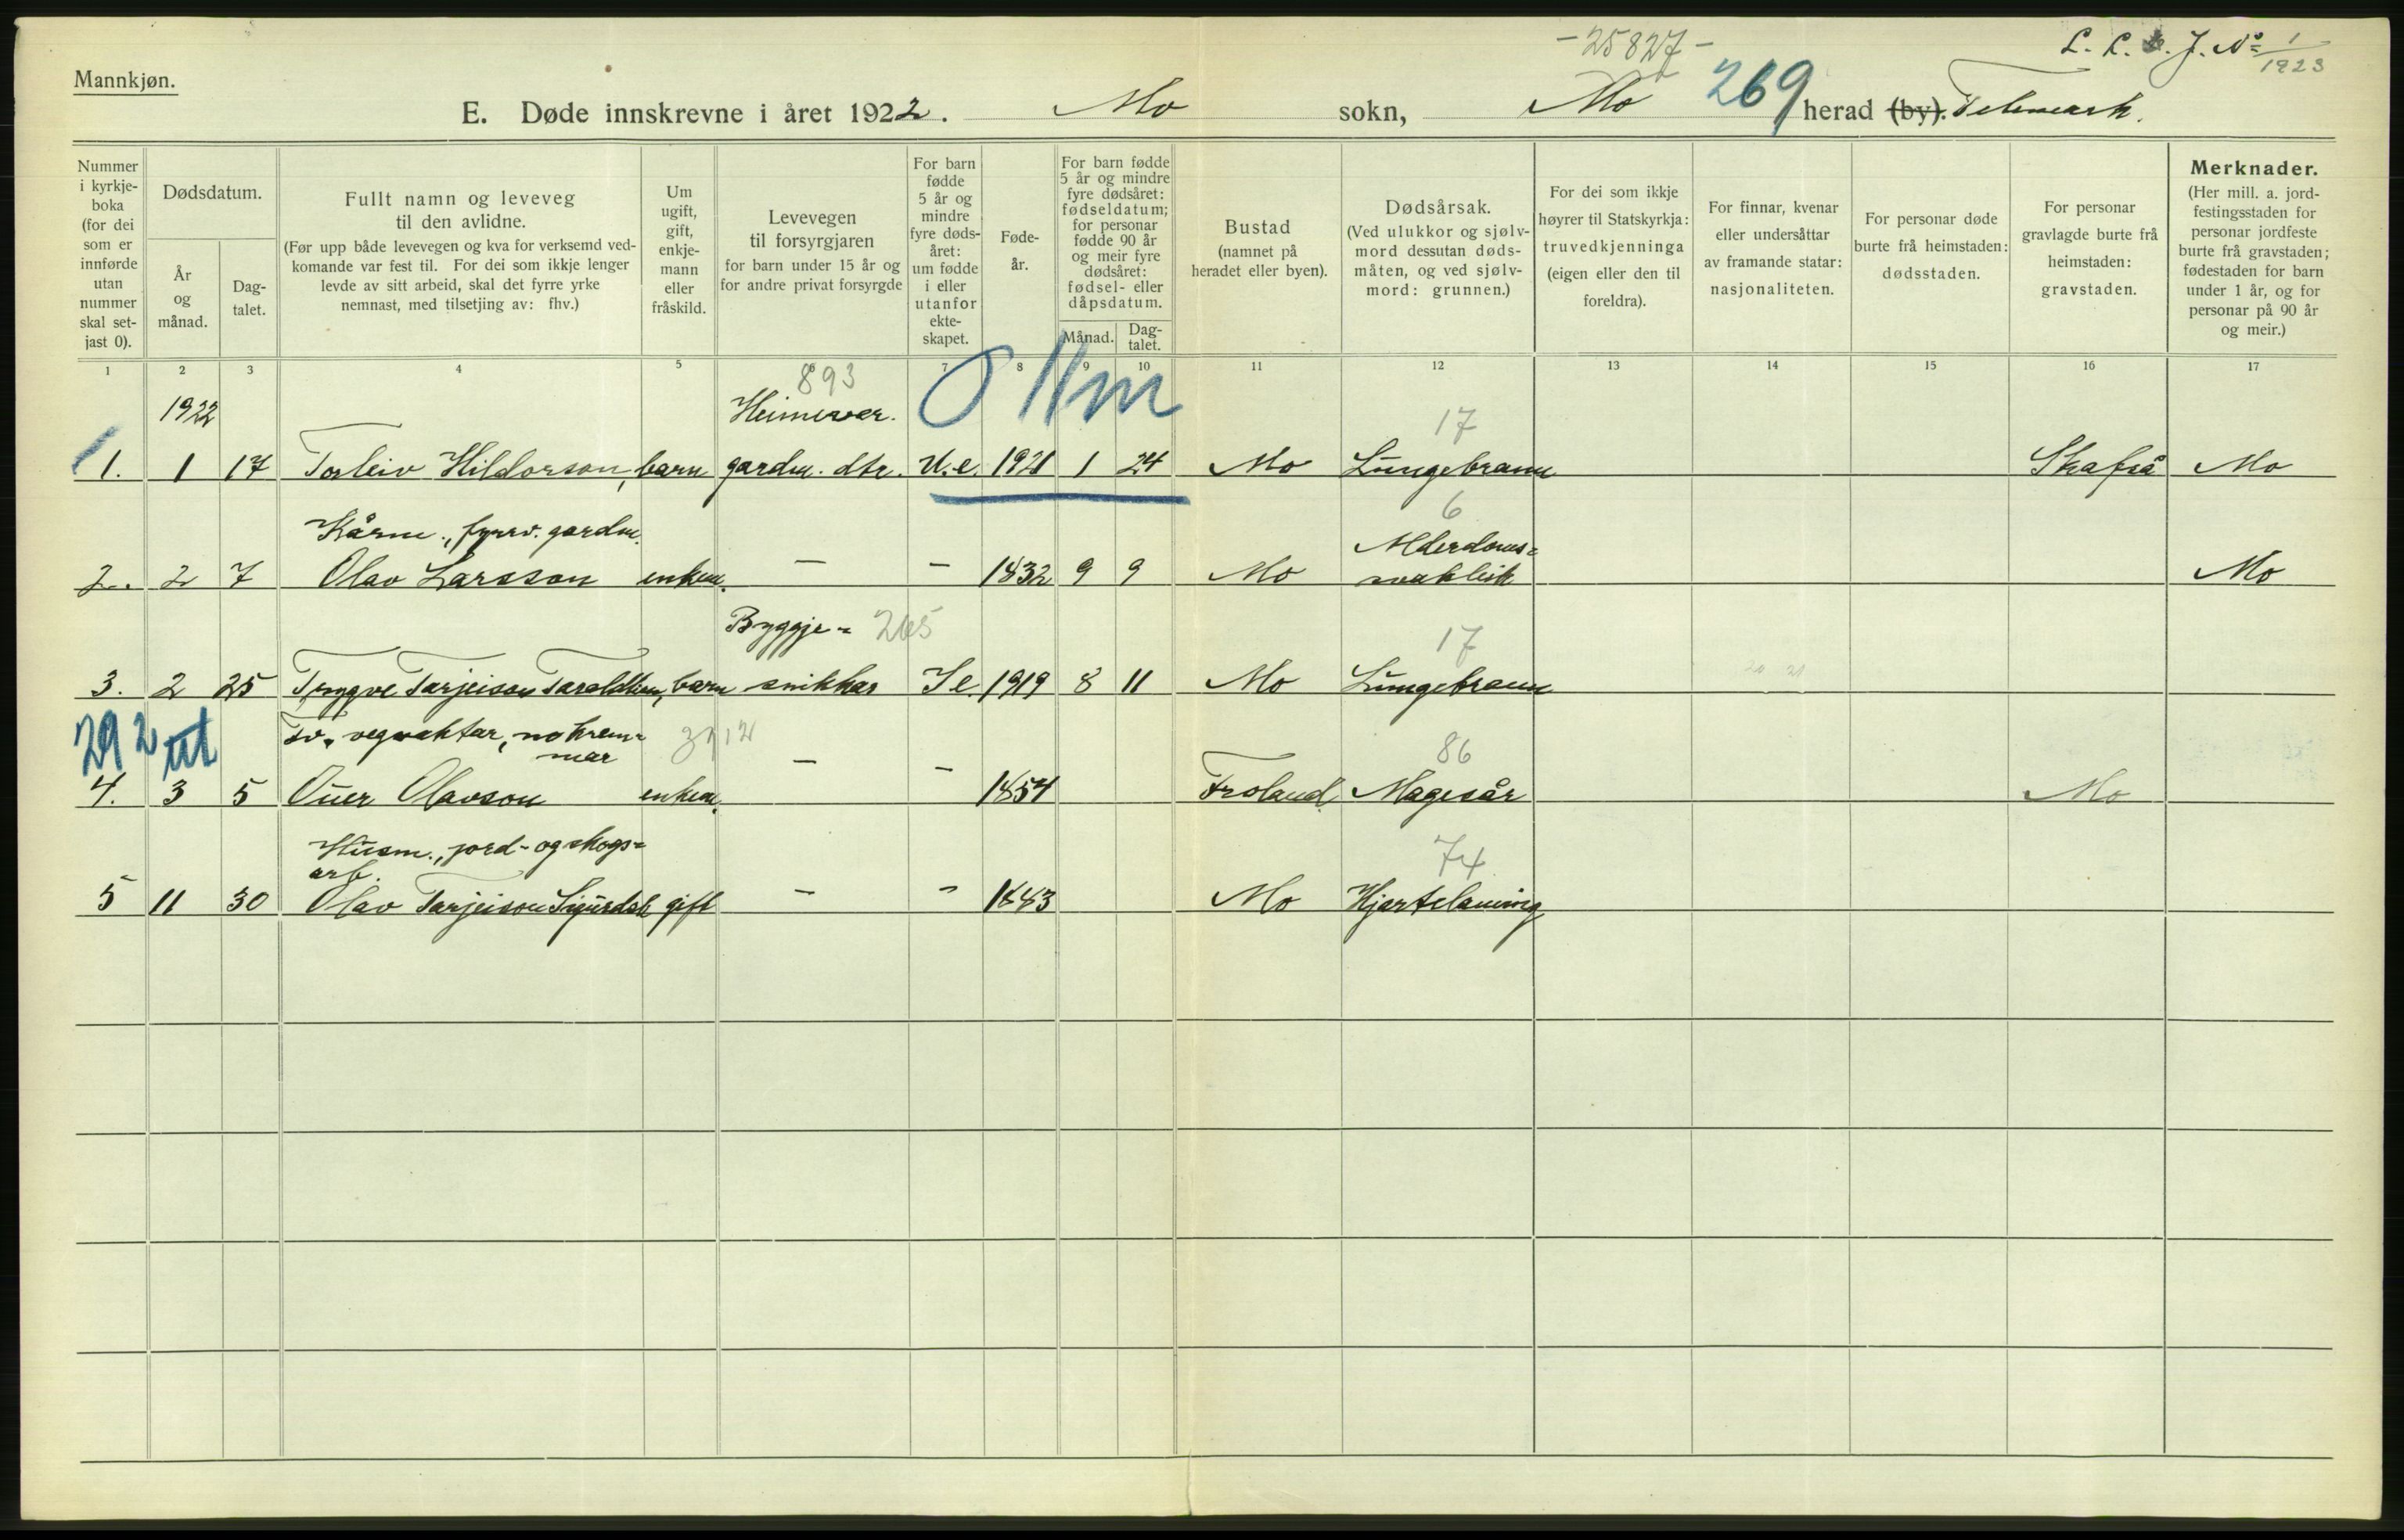 - 25827 -
L. L. J. No 1/1923
Mannkjøn.
E. Døde innskrevne i året 1922. Mo sokn, Mo 269 herad (by). Telemark.
Nummer i kyrkjeboka (for dei som er innførde utan nummer skal setjast 0).
Dødsdatum.
År og månad.
Dagtalet.
Fullt namn og leveveg til den avlidne.
(Før upp både levevegen og kva for verksemd vedkomande var fest til. For dei som ikkje lenger levde av sitt arbeid, skal det fyrre yrke nemnast, med tilsetjing av: fhv.)
Um ugift, gift, enkjemann eller fråskild.
Levevegen til forsyrgjaren for barn under 15 år og for andre privat forsyrgde
For barn fødde 5 år og mindre fyre dødsåret: um fødde i eller utanfor ekteskapet.
Fødeår.
For barn fødde 5 år og mindre fyre dødsåret: fødseldatum; for personar fødde 90 år og meir fyre dødsåret: fødsel- eller dåpsdatum.
Månad.
Dagtalet.
Bustad (namnet på heradet eller byen).
Dødsårsak.
(Ved ulukkor og sjølvmord dessutan dødsmåten, og ved sjølvmord: grunnen.)
For dei som ikkje høyrer til Statskyrkja: truvedkjenninga (eigen eller den til foreldra).
For finnar, kvenar eller undersåttar av framande statar: nasjonaliteten.
For personar døde burte frå heimstaden: dødsstaden.
For personar gravlagde burte frå heimstaden: gravstaden.
Merknader.
(Her mill. a. jordfestingsstaden for personar jordfeste burte frå gravstaden; fødestaden for barn under 1 år, og for personar på 90 år og meir.)
1 2 3 4 5 6 7 8 9 10 11 12 13 14 15 16 17
1922 893 Heimever. 0 11m 17
1. 1 17 Torleiv Hildorson, barn gardm. dtr. U.e. 1921 1 24 Mo Lungebrann Skafså Mo
Kårm., fyrrv. gardm. 6 Alderdoms=
2. 2 7 Olav Larsson enkem. - - 1832 9 9 Mo svakleik Mo
Byggje= 265 17
3. 2 25 Trygve Tarjeison Taraldlien, barn snikkar I e. 1919 8 11 Mo Lungebrann
292 ut vegvaktar, no krem=
mar 86
4. 3 5 Ouer Olavson enkem. - - 1854 Froland Magesår Mo
Husm., jord- og skogs=
arb. 74
5 11 30 Olav Tarjeison Sigurdsb gift - - 1843 Mo Hjartelaming